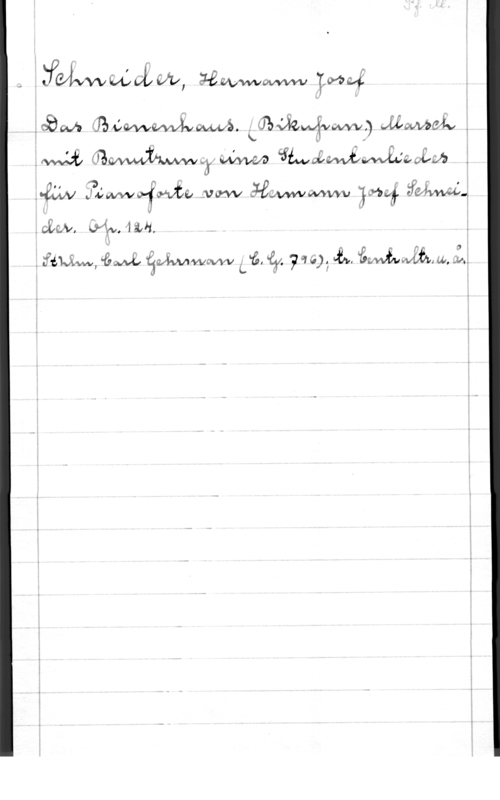 Pf M.
Schneider, Hermann Josef
Das Bienenhaus. (Bikupan.) Marsch
mit Benutzung eines Studentenliedes
für Pianoforte von Hermann Josef Schnei-
der. Op. 124.
Sthlm, Carl Gehrman (C. G. 796), tr. Centraltr. u. å.